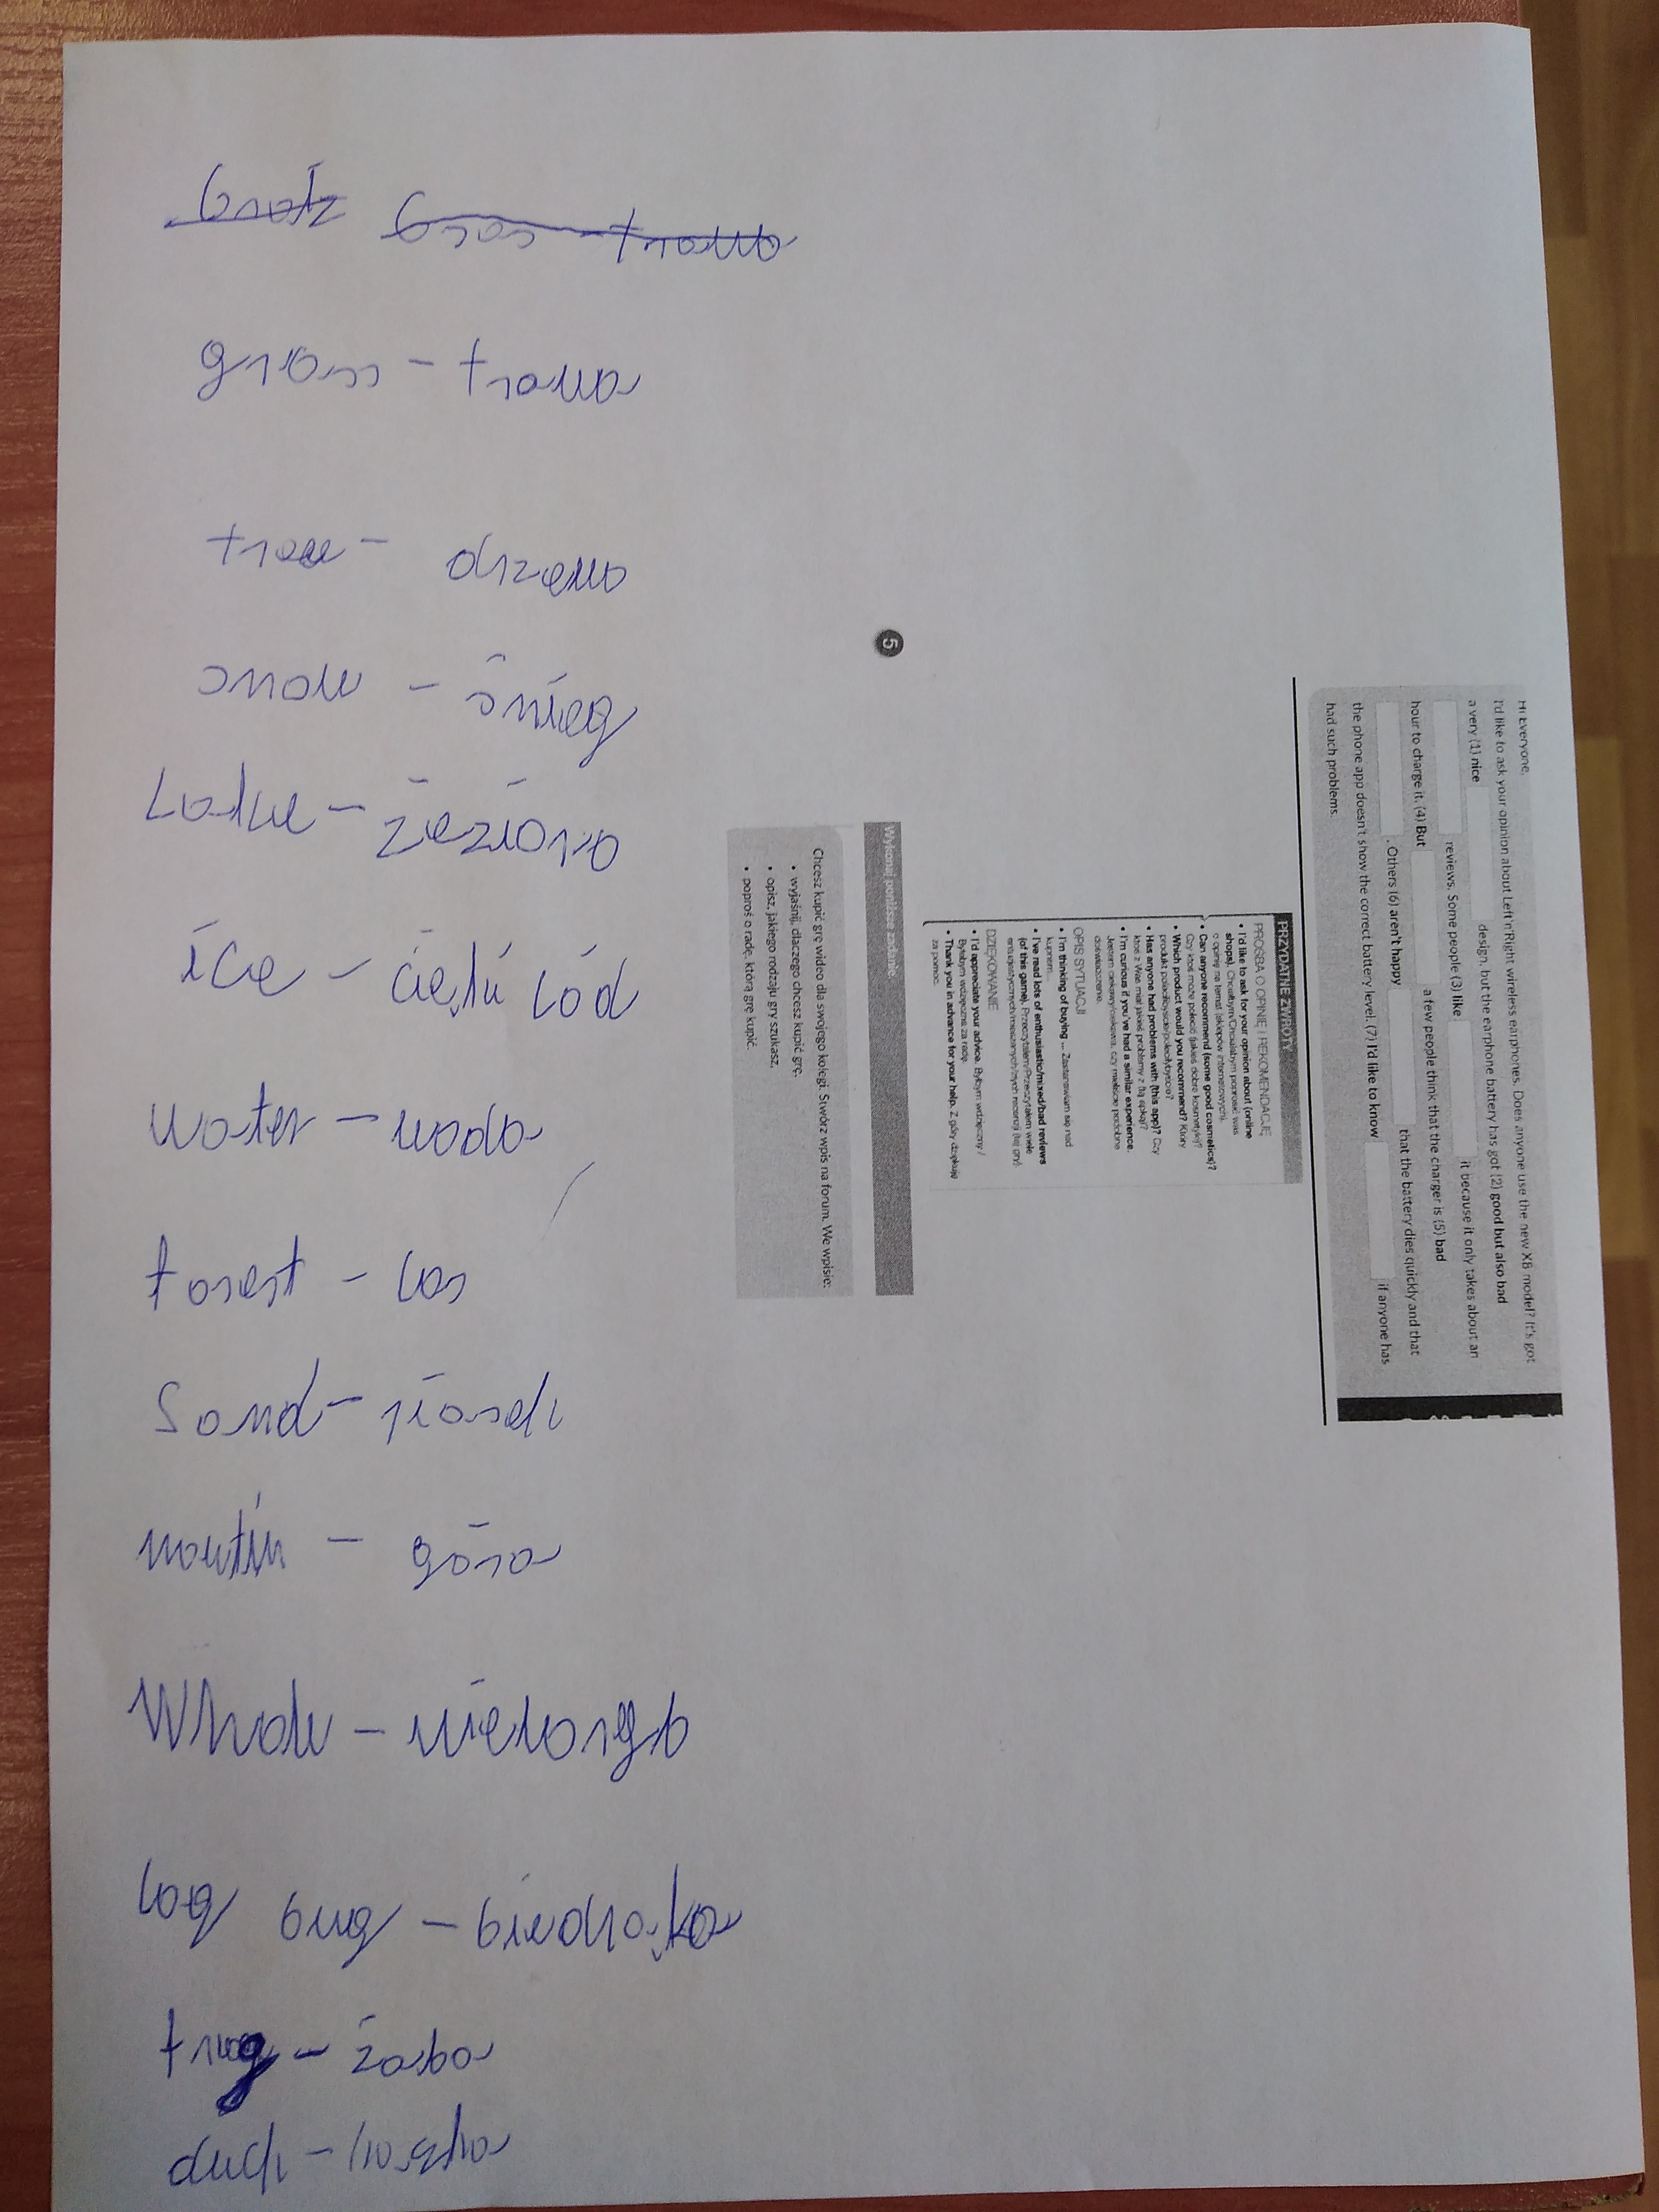 grass - trawa
tree - drzewo
snow - śnieg
Lake - żezioro
ice - ciękii lód
water - woda
forest - las
Sand - piasek
moutin - góra
Whale - wieloryb
log bug - biedrąka
frog - żaba
duck - kaczka
Hi Everyone,
I'd like to ask your opinion about Left'n'Right wireless earphones. Does anyone use the new X8 model? It's got
a very (1) nice design, but the earphone battery has got (2) good but also bad
reviews. Some people (3) like it because it only takes about an
hour to charge it. (4) But a few people think that the charger is (5) bad
. Others (6) aren't happy that the battery dies quickly and that
the phone app doesn't show the correct battery level. (7) I'd like to know if anyone has
had such problems.
PRZYDATNE ZWROTY
PROŚBA O OPINIĘ I REKOMENDACJE
• I'd like to ask for your opinion about (online
shops). Chciałbym/Chciałabym poprosić was
o opinię na temat (sklepów internetowych).
• Can anyone recommend (some good cosmetics)?
Czy ktoś może polecić (jakieś dobre kosmetyki)?
• Which product would you recommend? Który
produkt polecilibyście/poleciłybyście?
• Has anyone had problems with (this app)? Czy
ktoś z Was miał jakieś problemy z (tą apką)?
• I'm curious if you've had a similar experience.
Jestem ciekawy/ciekawa, czy mieliście podobne
doświadczenie.
OPIS SYTUACJI
• I'm thinking of buying ... Zastanawiam się nad
kupnem...
• I've read lots of enthusiastic/mixed/bad reviews
(of this game). Przeczytałem/Przeczytałam wiele
entuzjastycznych/mieszanych/złych recenzji (tej gry).
DZIĘKOWANIE
• I'd appreciate your advice. Byłbym wdzięczny /
Byłabym wdzięczna za radę.
• Thank you in advance for your help. Z góry dziękuję
za pomoc.
5
Wykonaj poniższe zadanie.
Chcesz kupić grę wideo dla swojego kolegi. Stwórz wpis na forum. We wpisie:
• wyjaśnij, dlaczego chcesz kupić grę,
• opisz, jakiego rodzaju gry szukasz,
• poproś o radę, którą grę kupić.